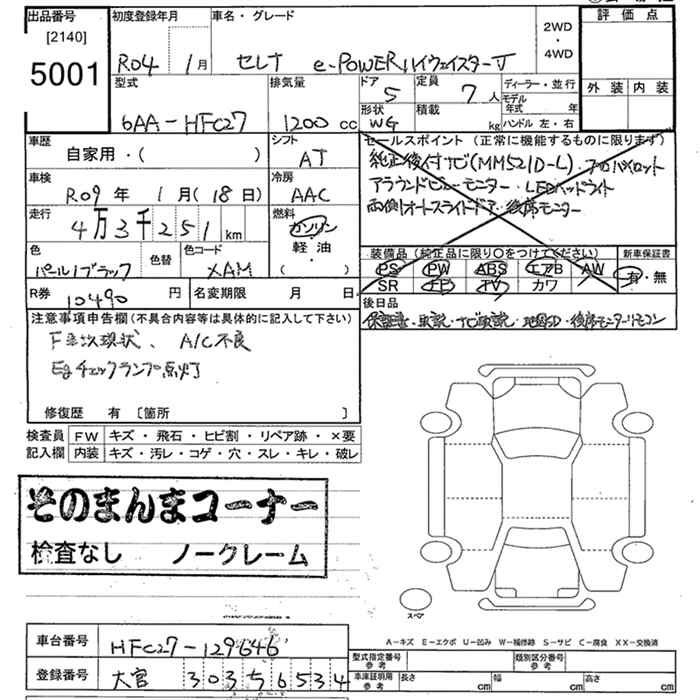 出品番号
[2140]
5001
初度登録年月
R04 1月
車名・グレード
セレナ e-POWERハイウェイスターV
2WD
・
4WD
評価点
外装 内装
型式
6AA-HFC27
排気量
1200 cc
ドア
5
定員
7人
形状
WG
積載
kg
ディーラー・並行
モデル年式 年
ハンドル 左・右
車歴
自家用・( )
シフト
AT
車検
R09年 1月(18日)
冷房
AAC
走行
4万3千251km
燃料
ガソリン
軽油
( )
色
パール/ブラック
色替
色コード
XAM
R券
10490円
名変期限 月 日
セールスポイント(正常に機能するものに限ります)
純正後付ナビ(MM521D-L)・プロパイロット
アラウンドビューモニター・LEDヘッドライト
両側オートスライドドア・後席モニター
装備品(純正品に限り〇をつけてください)
PS PW ABS エアB AW
SR TV カワ
新車保証書
有・無
後日品
保証書・取説・ナビ取説・地図SD・後席モニターリモコン
注意事項申告欄(不具合内容等は具体的に記入して下さい)
現状、A/C不良
Egチェックランプ点灯
修復歴 有 [箇所 ]
検査員記入欄
FW キズ・飛石・ヒビ割・リペア跡・×要
内装 キズ・汚レ・コゲ・穴・スレ・キレ・破レ
そのまんまコーナー
検査なし ノークレーム
スペア
A-キズ E-エクボ U-凹み W-補修跡 S-サビ C-腐食 XX-交換済
車台番号
HFC27-129646
登録番号
大宮 303 す 6534
型式指定番号
参考
類別区分番号
参考
車庫証明用
参考
長さ cm
幅 cm
高さ cm